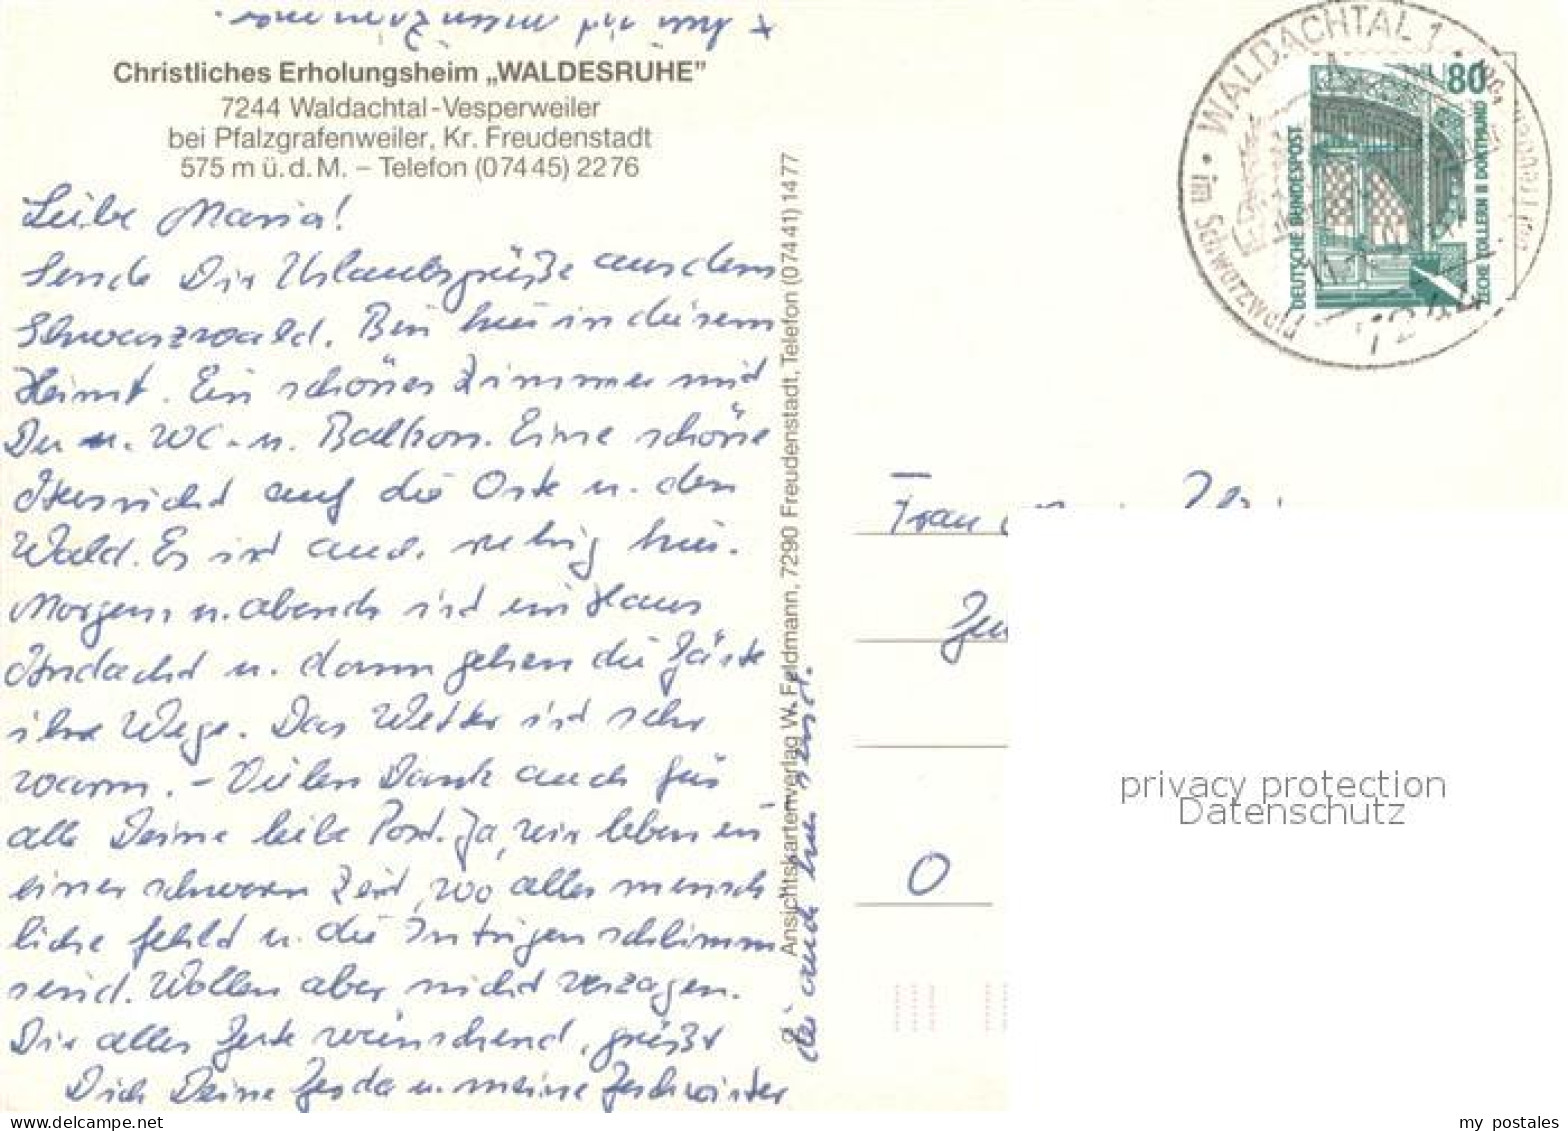 Christliches Erholungsheim „WALDESRUHE”
7244 Waldachtal-Vesperweiler
bei Pfalzgrafenweiler, Kr. Freudenstadt
575 m ü. d. M. – Telefon (07445) 2276
Liebe Maria!
Sende Dir Urlaubsgrüße aus dem
Schwarzwald. Bin hier in diesem
Heim. Ein schönes Zimmer mit
Du u. WC - u. Balkon. Eine schöne
Aussicht auf die Orte u. den
Wald. Es ist auch ruhig hier.
Morgens u. abends ist im Haus
Andacht u. dann gehen die Gäste
ihre Wege. Das Wetter ist sehr
warm. – Vielen Dank auch für
alle Deine liebe Post. Ja, wir leben in
einer schweren Zeit, wo alles mensch
liche fehlt u. die Intrigen schlimm
sind. Wollen aber nicht verzagen.
Dir alles Gute wünschend, grüßt
Dich Deine Gerda u. meine Geschwister
die auch hier sind.
Ansichtskartenverlag W. Feldmann, 7290 Freudenstadt, Telefon (07441) 1477
WALDACHTAL 1
im Schwarzwald
7244
80
DEUTSCHE BUNDESPOST
ZECHE ZOLLERN II DORTMUND
Frau
O
privacy protection
Datenschutz
delcampe.net
my_postales